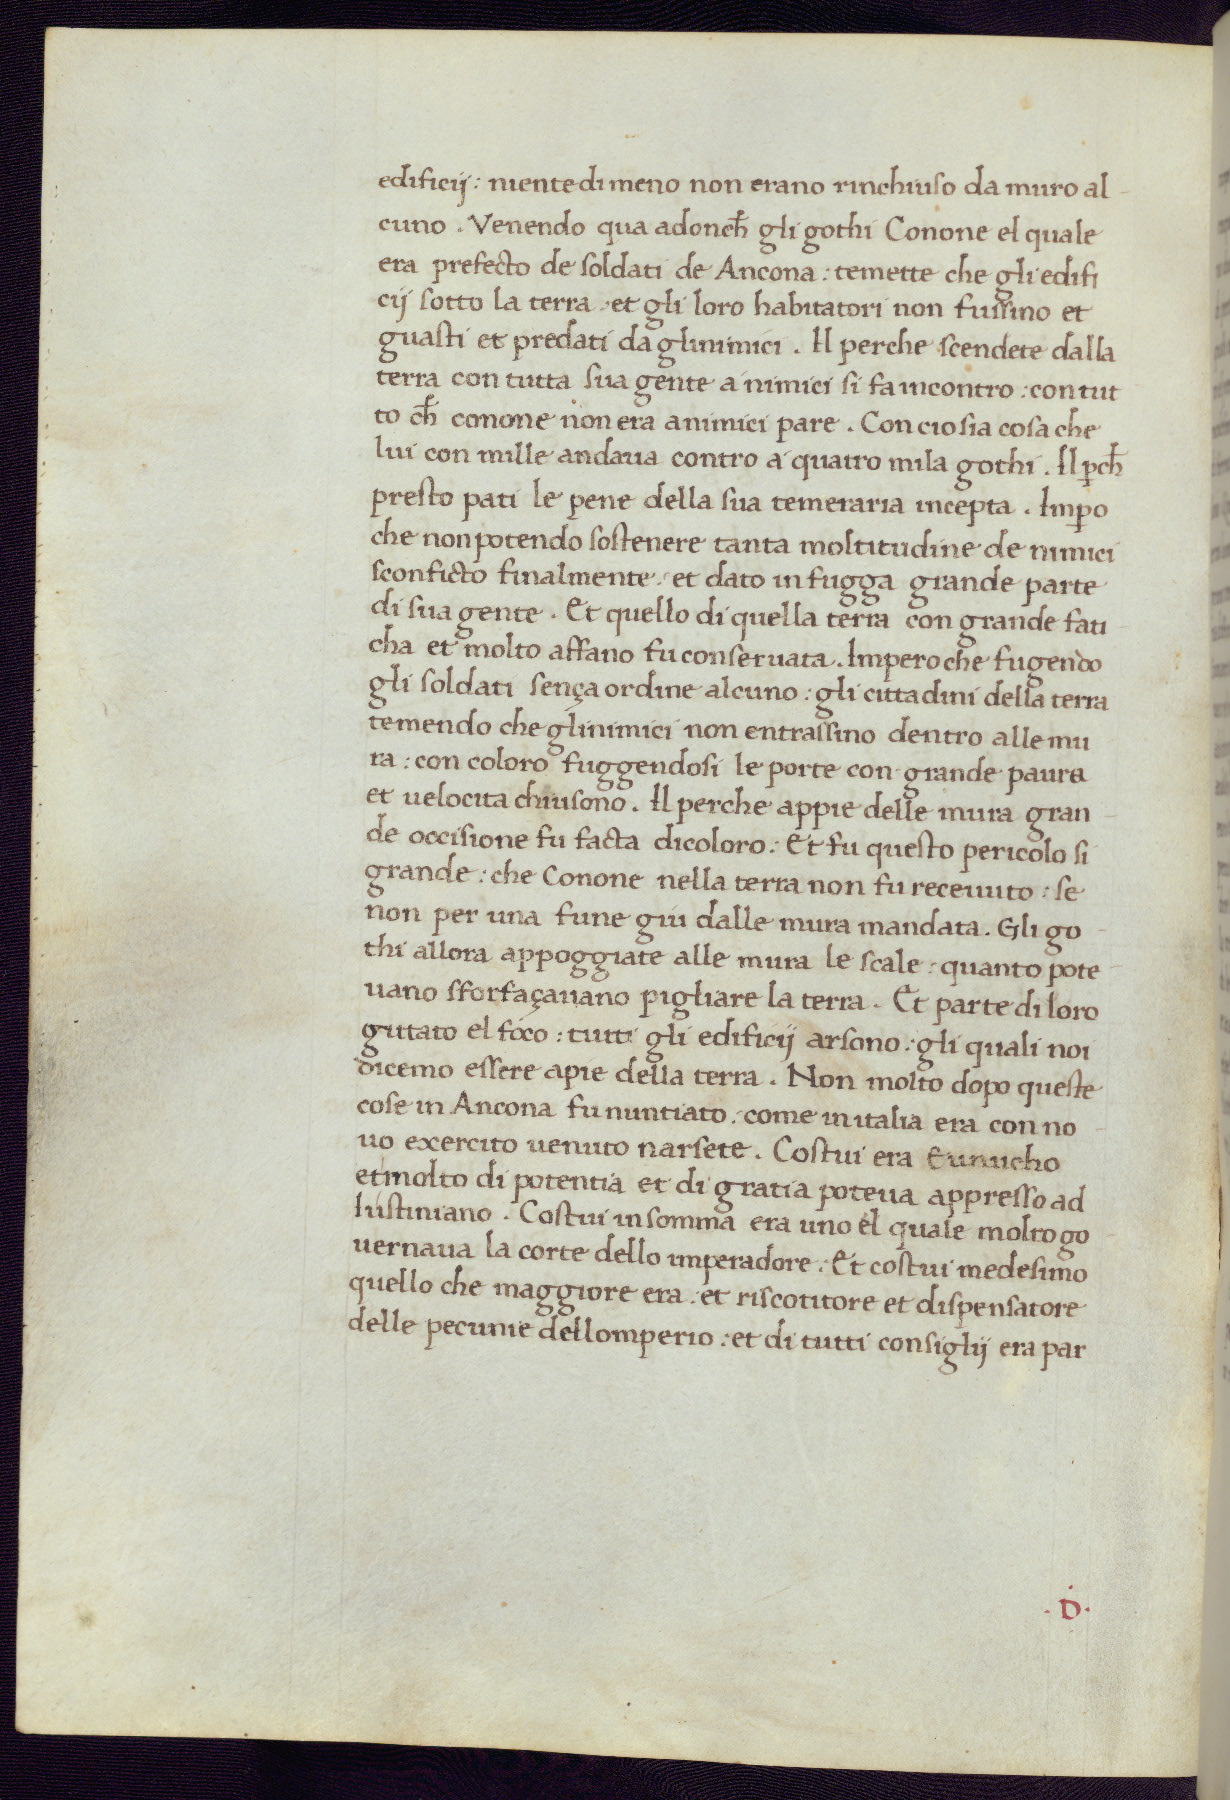 edificij: nientedimeno non erano rinchiuso da muro al
cuno. Venendo qua adonch̄ gli gothi Conone el quale
era prefecto de soldati de Ancona: temette che gli edifi
cij sotto la terra et gli loro habitatori non fussino et
guasti et predati da glinimici. Il perche scendete dalla
terra con tutta sua gente a nimici si fa incontro: con tut
to ch̄ conone non era a nimici pare. Con cio sia cosa che
lui con mille andava contro a quatro mila gothi. Il pch̄
presto pati le pene della sua temeraria incepta. Impo
che non potendo sostenere tanta moltitudine de nimici
sconficto finalmente et dato in fugga grande parte
di sua gente. Et quello di quella terra con grande fati
cha et molto affano fu conservata. Impero che fugendo
gli soldati sença ordine alcuno: gli cittadini della terra
temendo che glinimici non entrassino dentro alle mu
ra: con coloro fuggendosi le porte con grande paura
et velocita chiusono. Il perche appie delle mura gran
de occisione fu facta di coloro: Et fu questo pericolo si
grande: che Conone nella terra non fu recevuto: se
non per una fune giu dalle mura mandata. Gli go
thi allora appoggiate alle mura le scale: quanto pote
vano sforfaçavano pigliare la terra. Et parte di loro
gittato el foco: tutti gli edificij arsono: gli quali noi
dicemo essere apie della terra. Non molto dopo queste
cose in Ancona fu nuntiato. come in italia era con no
vo exercito venuto narsete. Costui era Eunucho
et molto di potentia et di gratia poteva appresso ad
Iustiniano. Costui in somma era uno el quale molto go
vernava la corte dello imperadore: Et costui medesimo
quello che maggiore era. et riscotitore et dispensatore
delle pecunie dellomperio: et di tutti consiglij era par
.D.